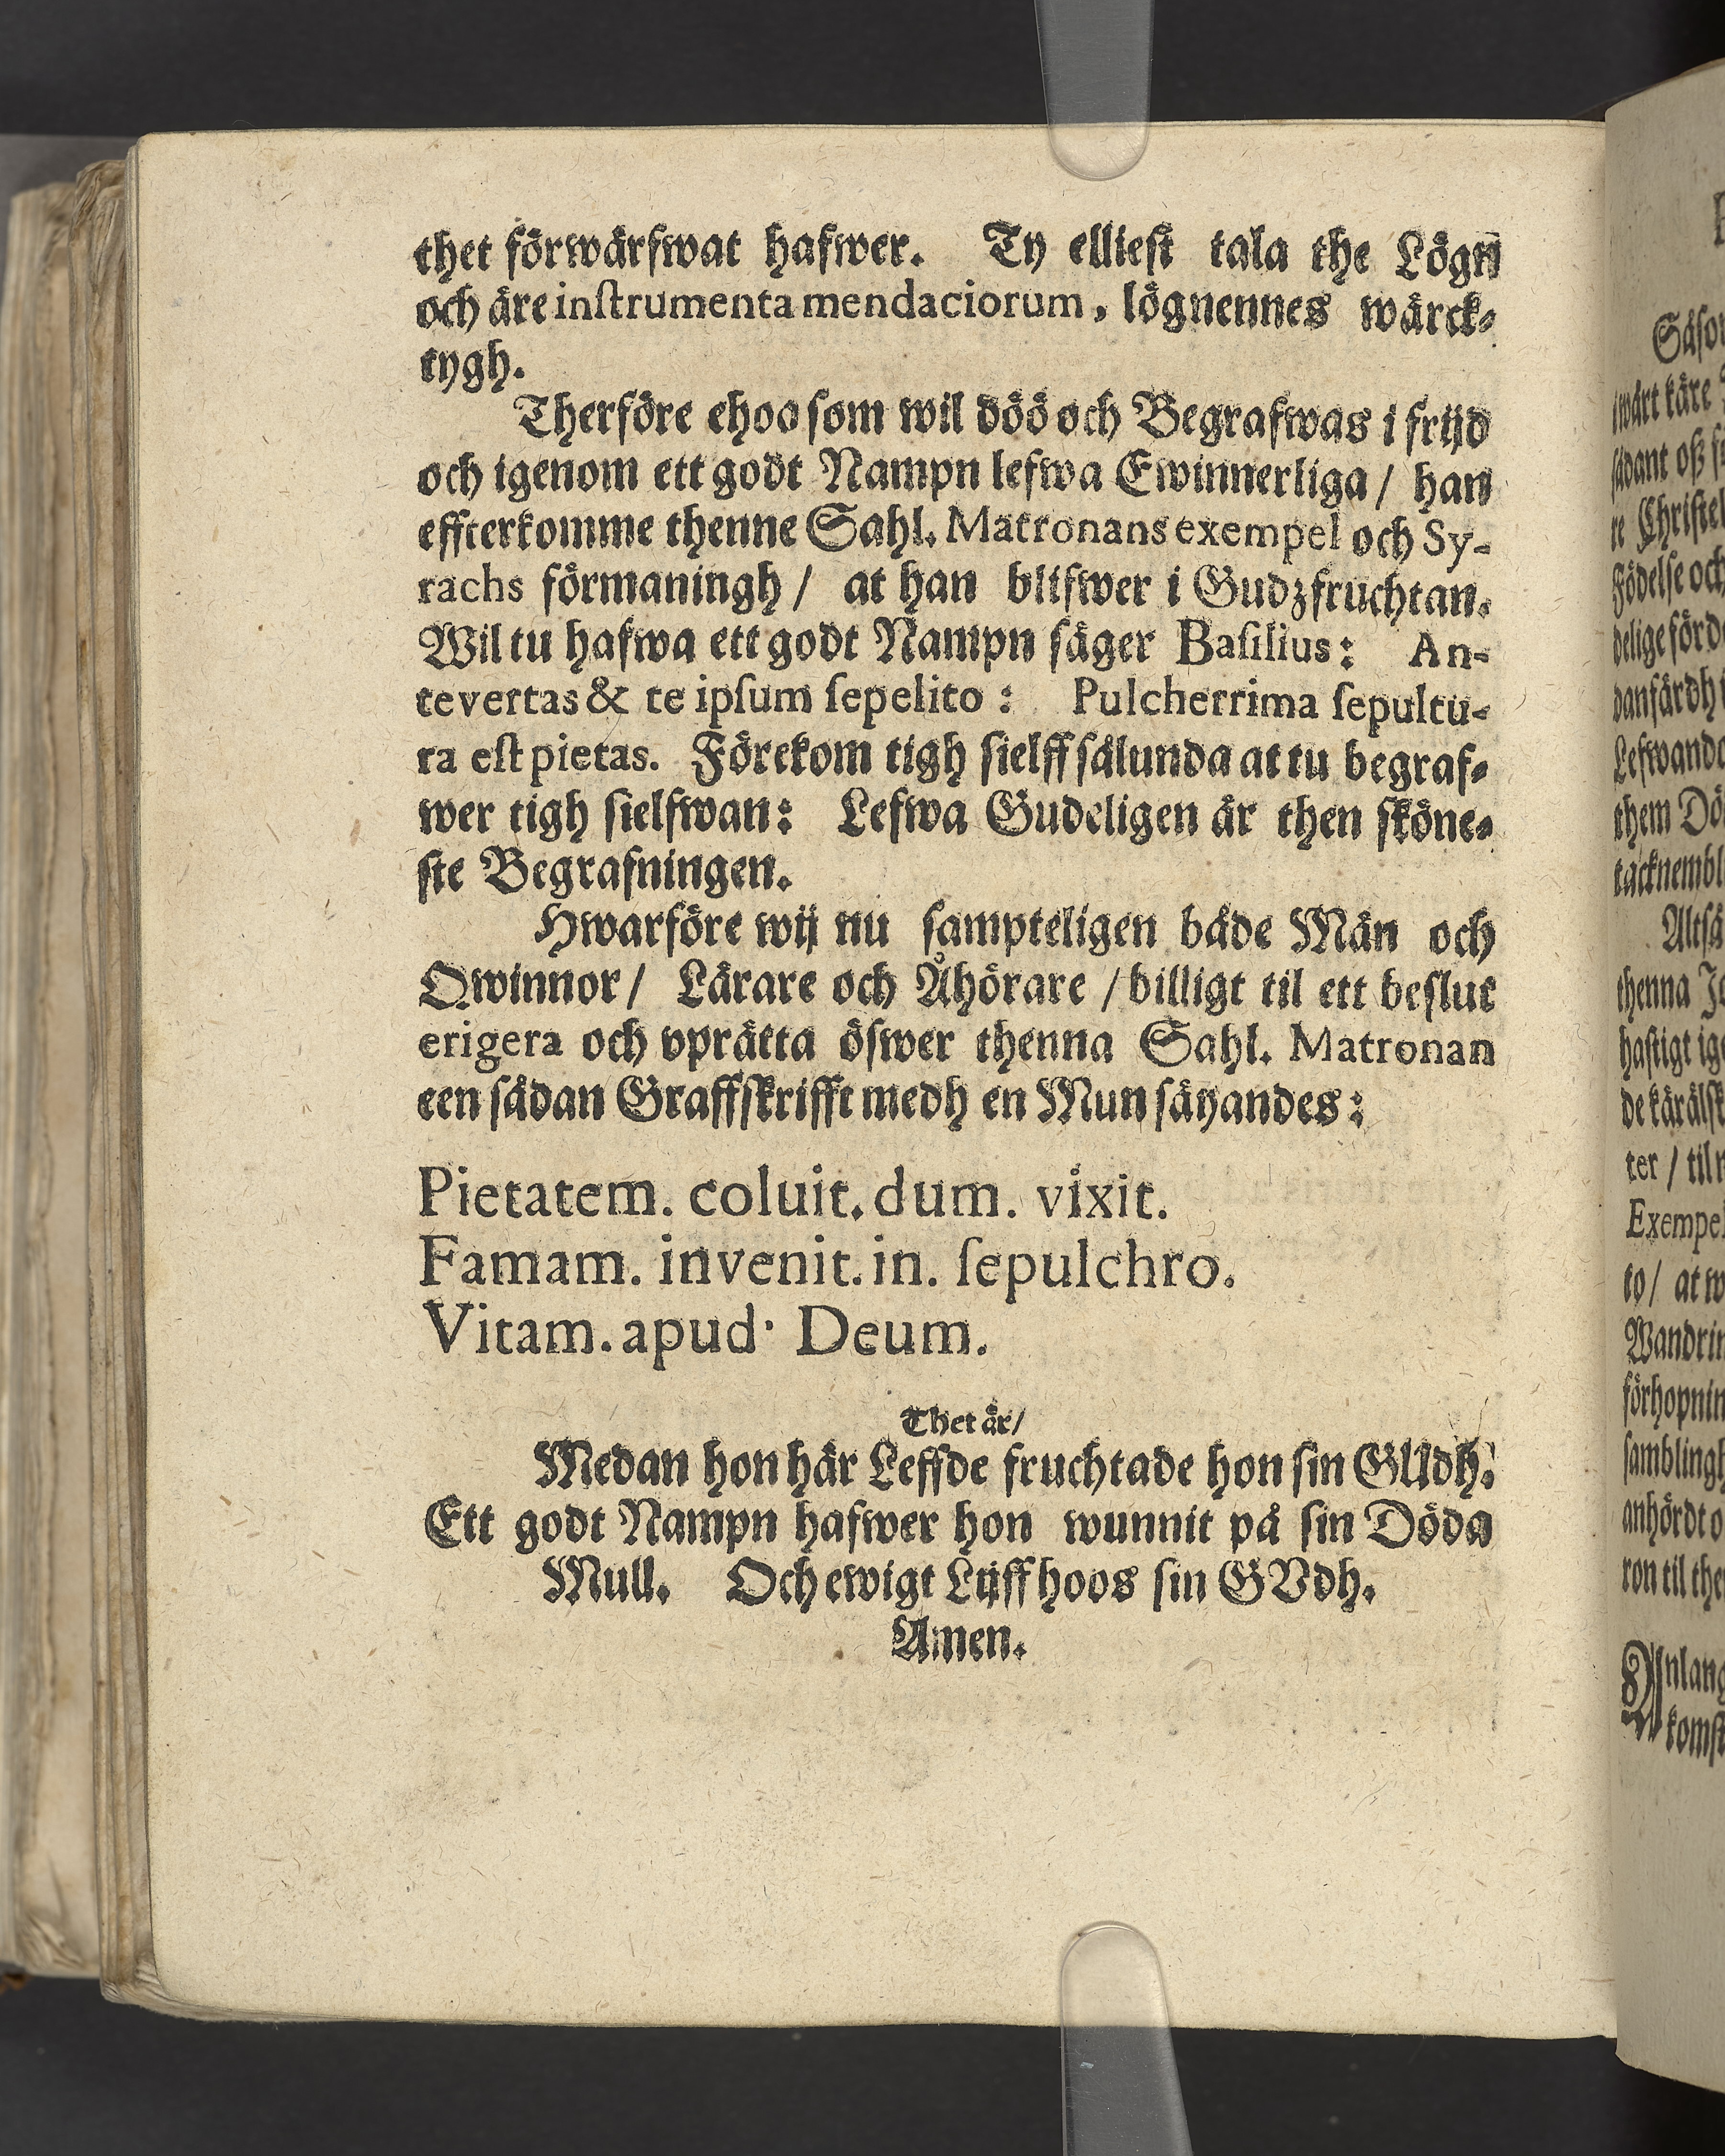 thet förwärfwat hafwer. Ty elliest tala the Lögn
och äre inſtrumenta mendaciorum, lögnennes wärck-
tygh.
Therföre ehoo som wil döö och Begrafwas i frijd
och igenom ett godt Nampn lefwa Ewinnerliga / han
effterkomme thenne Sahl. Matronans exempel och Sy-
rachs förmaningh / at han blifwer i Gudzfruchtan.
Wil tu hafwa ett godt Nampn säger Baſilius: An-
tevertas & te ipſum ſepelito: Pulcherrima ſepultu-
ra eſt pietas. Förekom tigh sielff sålunda at tu begraf-
wer tigh sielfwan: Lefwa Gudeligen är then sköne-
ste Begrafningen.
Hwarföre wij nu sampteligen både Män och
Qwinnor / Lärare och Åhörare / billigt til ett beslut
erigera och vprätta öfwer thenna Sahl. Matronan
een sådan Graffskrifft medh en Mun säyandes:
Pietatem. coluit. dum. vixit.
Famam. invenit. in. ſepulchro.
Vitam. apud· Deum.
Thet är /
Medan hon här Leffde fruchtade hon sin GUdh.
Ett godt Nampn hafwer hon wunnit på sin Döda
Mull. Och ewigt Lijff hoos sin GVdh.
Amen.
wärt käre
sådant oß
re Christel
Födelse och
delige förde
danfärdh
Lefwande
them Dö
tacknembl
Altså
thenna
hastigt ige
de kärälsk
ter / til
Exempel
to / at w
Wandrin
förhopnin
samblingh
anhördt o
ron til the
Anlang
komst